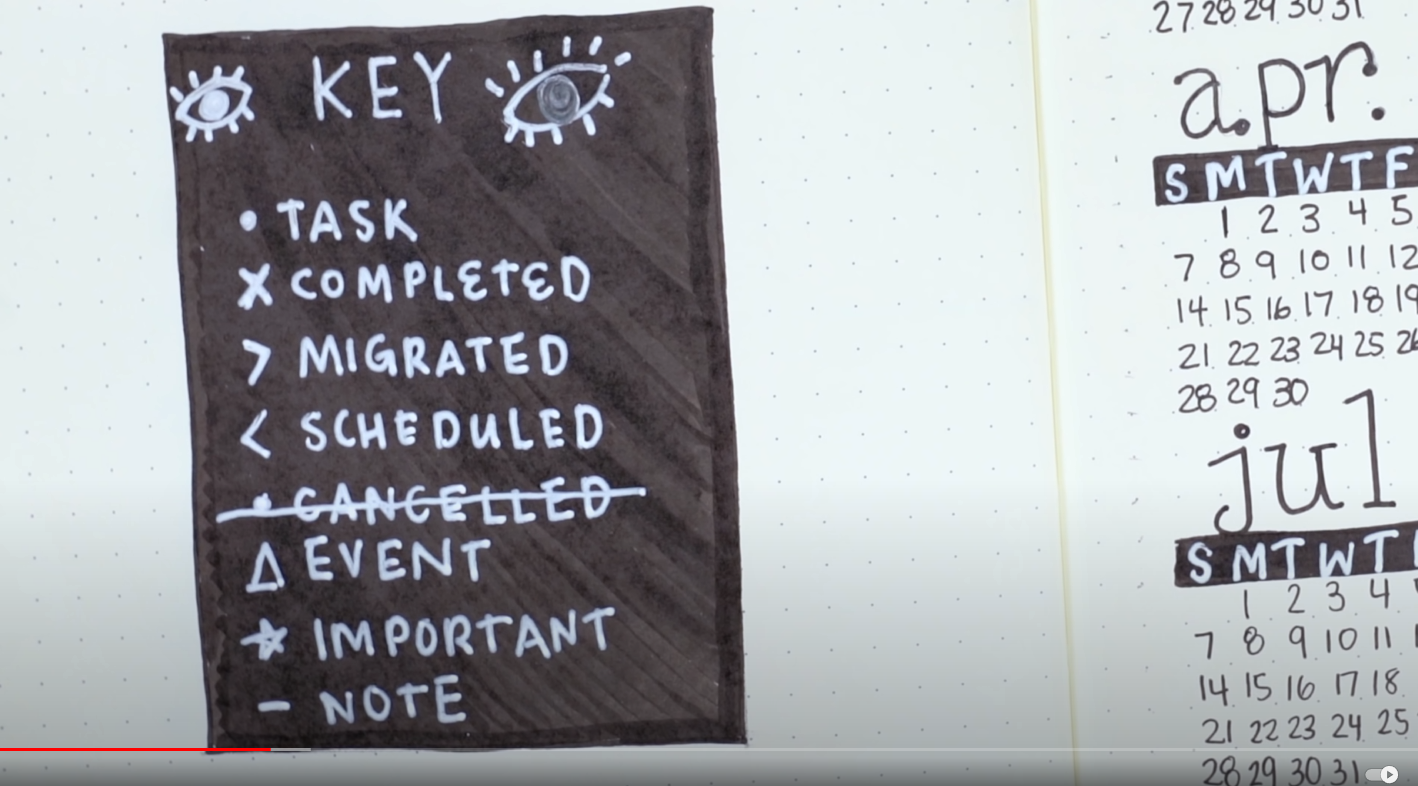 KEY
• TASK
X COMPLETED
> MIGRATED
< SCHEDULED
• CANCELLED
△ EVENT
☆ IMPORTANT
– NOTE
27 28 29 30 31
apr.
S M T W T F
1 2 3 4 5
7 8 9 10 11 12
14 15 16 17 18 19
21 22 23 24 25 26
28 29 30
jul
S M T W T
1 2 3 4
7 8 9 10 11
14 15 16 17 18
21 22 23 24 25
28 29 30 31